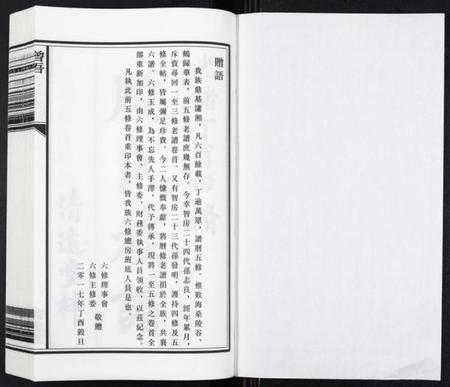 贈語
我族鼎基瀟湘，凡六百餘載，丁逾萬眾，譜曆五修。惟歎海桑陵谷、
鶴歸華表，前五修老譜庶幾無存。今幸智房二十四代孫志良，經年累月，
斥資尋回一至三修老譜卷首。又有智房二十三代孫發明，護持四修及五
修全帖，皆屬彌足珍貴。今二人慷慨奉獻，將曆修老譜捐於全族，共襄
六譜。六修玉成，為不忘先人手澤，代予傳承，現將一至五修之卷首全
部重新加印，由六修理事會、主修委、財務委執事人員領收，以茲紀念。
凡執此前五修卷首重印本者，皆我族六修總房班底人員是也。
六修理事會
六修主修委
敬贈
二零一七年丁酉穀旦